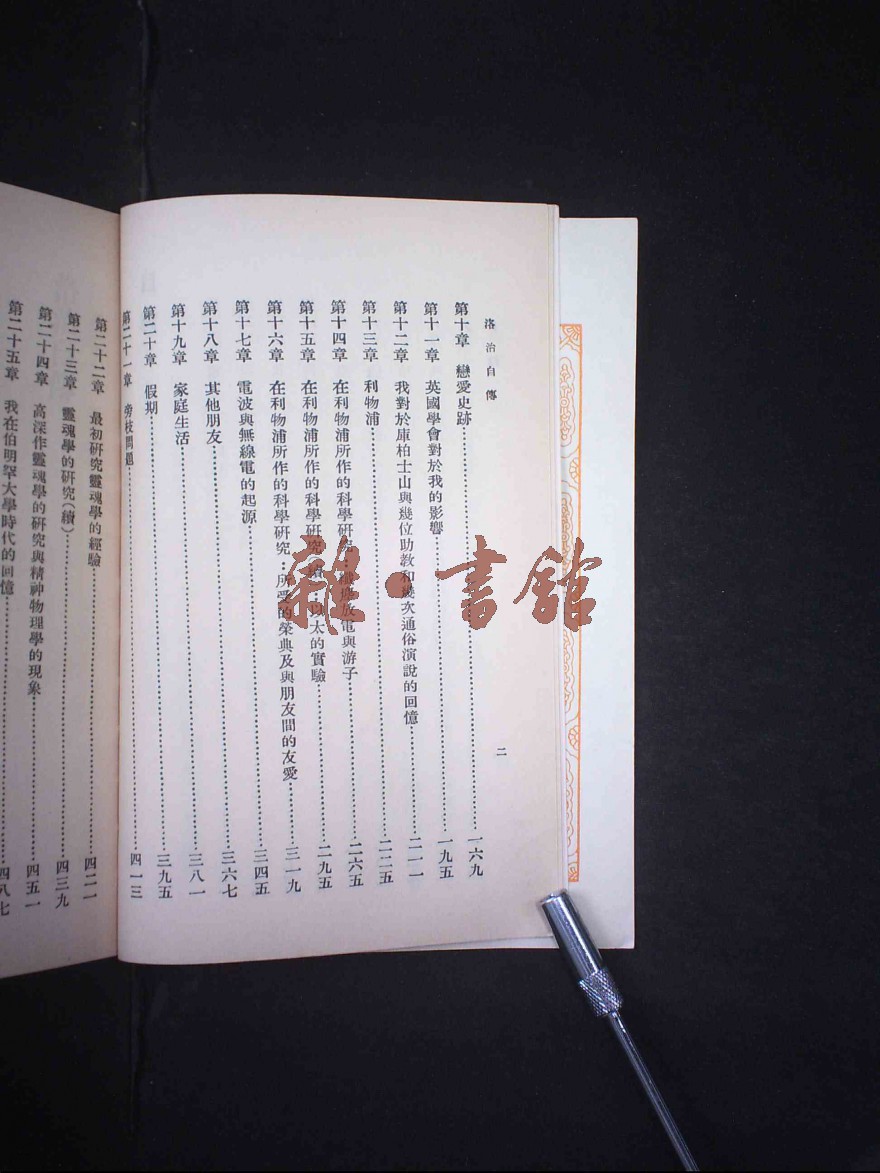 洛治自傳
二
第十章 戀愛史跡 一六九
第十一章 英國學會對於我的影響 一九五
第十二章 我對於庫柏士山與幾位助教和幾次通俗演說的回憶 二一一
第十三章 利物浦 二二五
第十四章 在利物浦所作的科學研究 放電與游子 二六五
第十五章 在利物浦所作的科學研究 以太的實驗 二九五
第十六章 在利物浦所作的科學研究 所受的榮典及與朋友間的友愛 三一九
第十七章 電波與無線電的起源 三四五
第十八章 其他朋友 三六七
第十九章 家庭生活 三八一
第二十章 假期 三九五
第二十一章 旁枝問題 四一三
第二十二章 最初研究靈魂學的經驗 四二一
第二十三章 靈魂學的研究(續) 四三九
第二十四章 高深作靈魂學的研究與精神物理學的現象 四五一
第二十五章 我在伯明罕大學時代的回憶 四八七
雜·書館